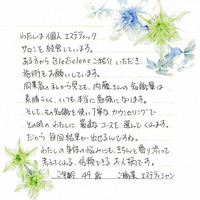 わたしは個人エステティック
サロンを経営しています。
ある方からBleuSeleneご紹介いただき、
施術をお願いしています。
同業者のわたしから見ても、内藤さんの知識量は
素晴らしく、いつも本当に勉強になります。
そして、その知識を使い丁寧なカウンセリングで
その時のわたしに最適なコースを選んでくれます。
だから毎回結果が出せるんですね。
わたしの身体の悩みにも、きちんと寄り添って
考えてくれる、信頼できるお人柄です。
ご年齢 49歳 ご職業 エステティシャン